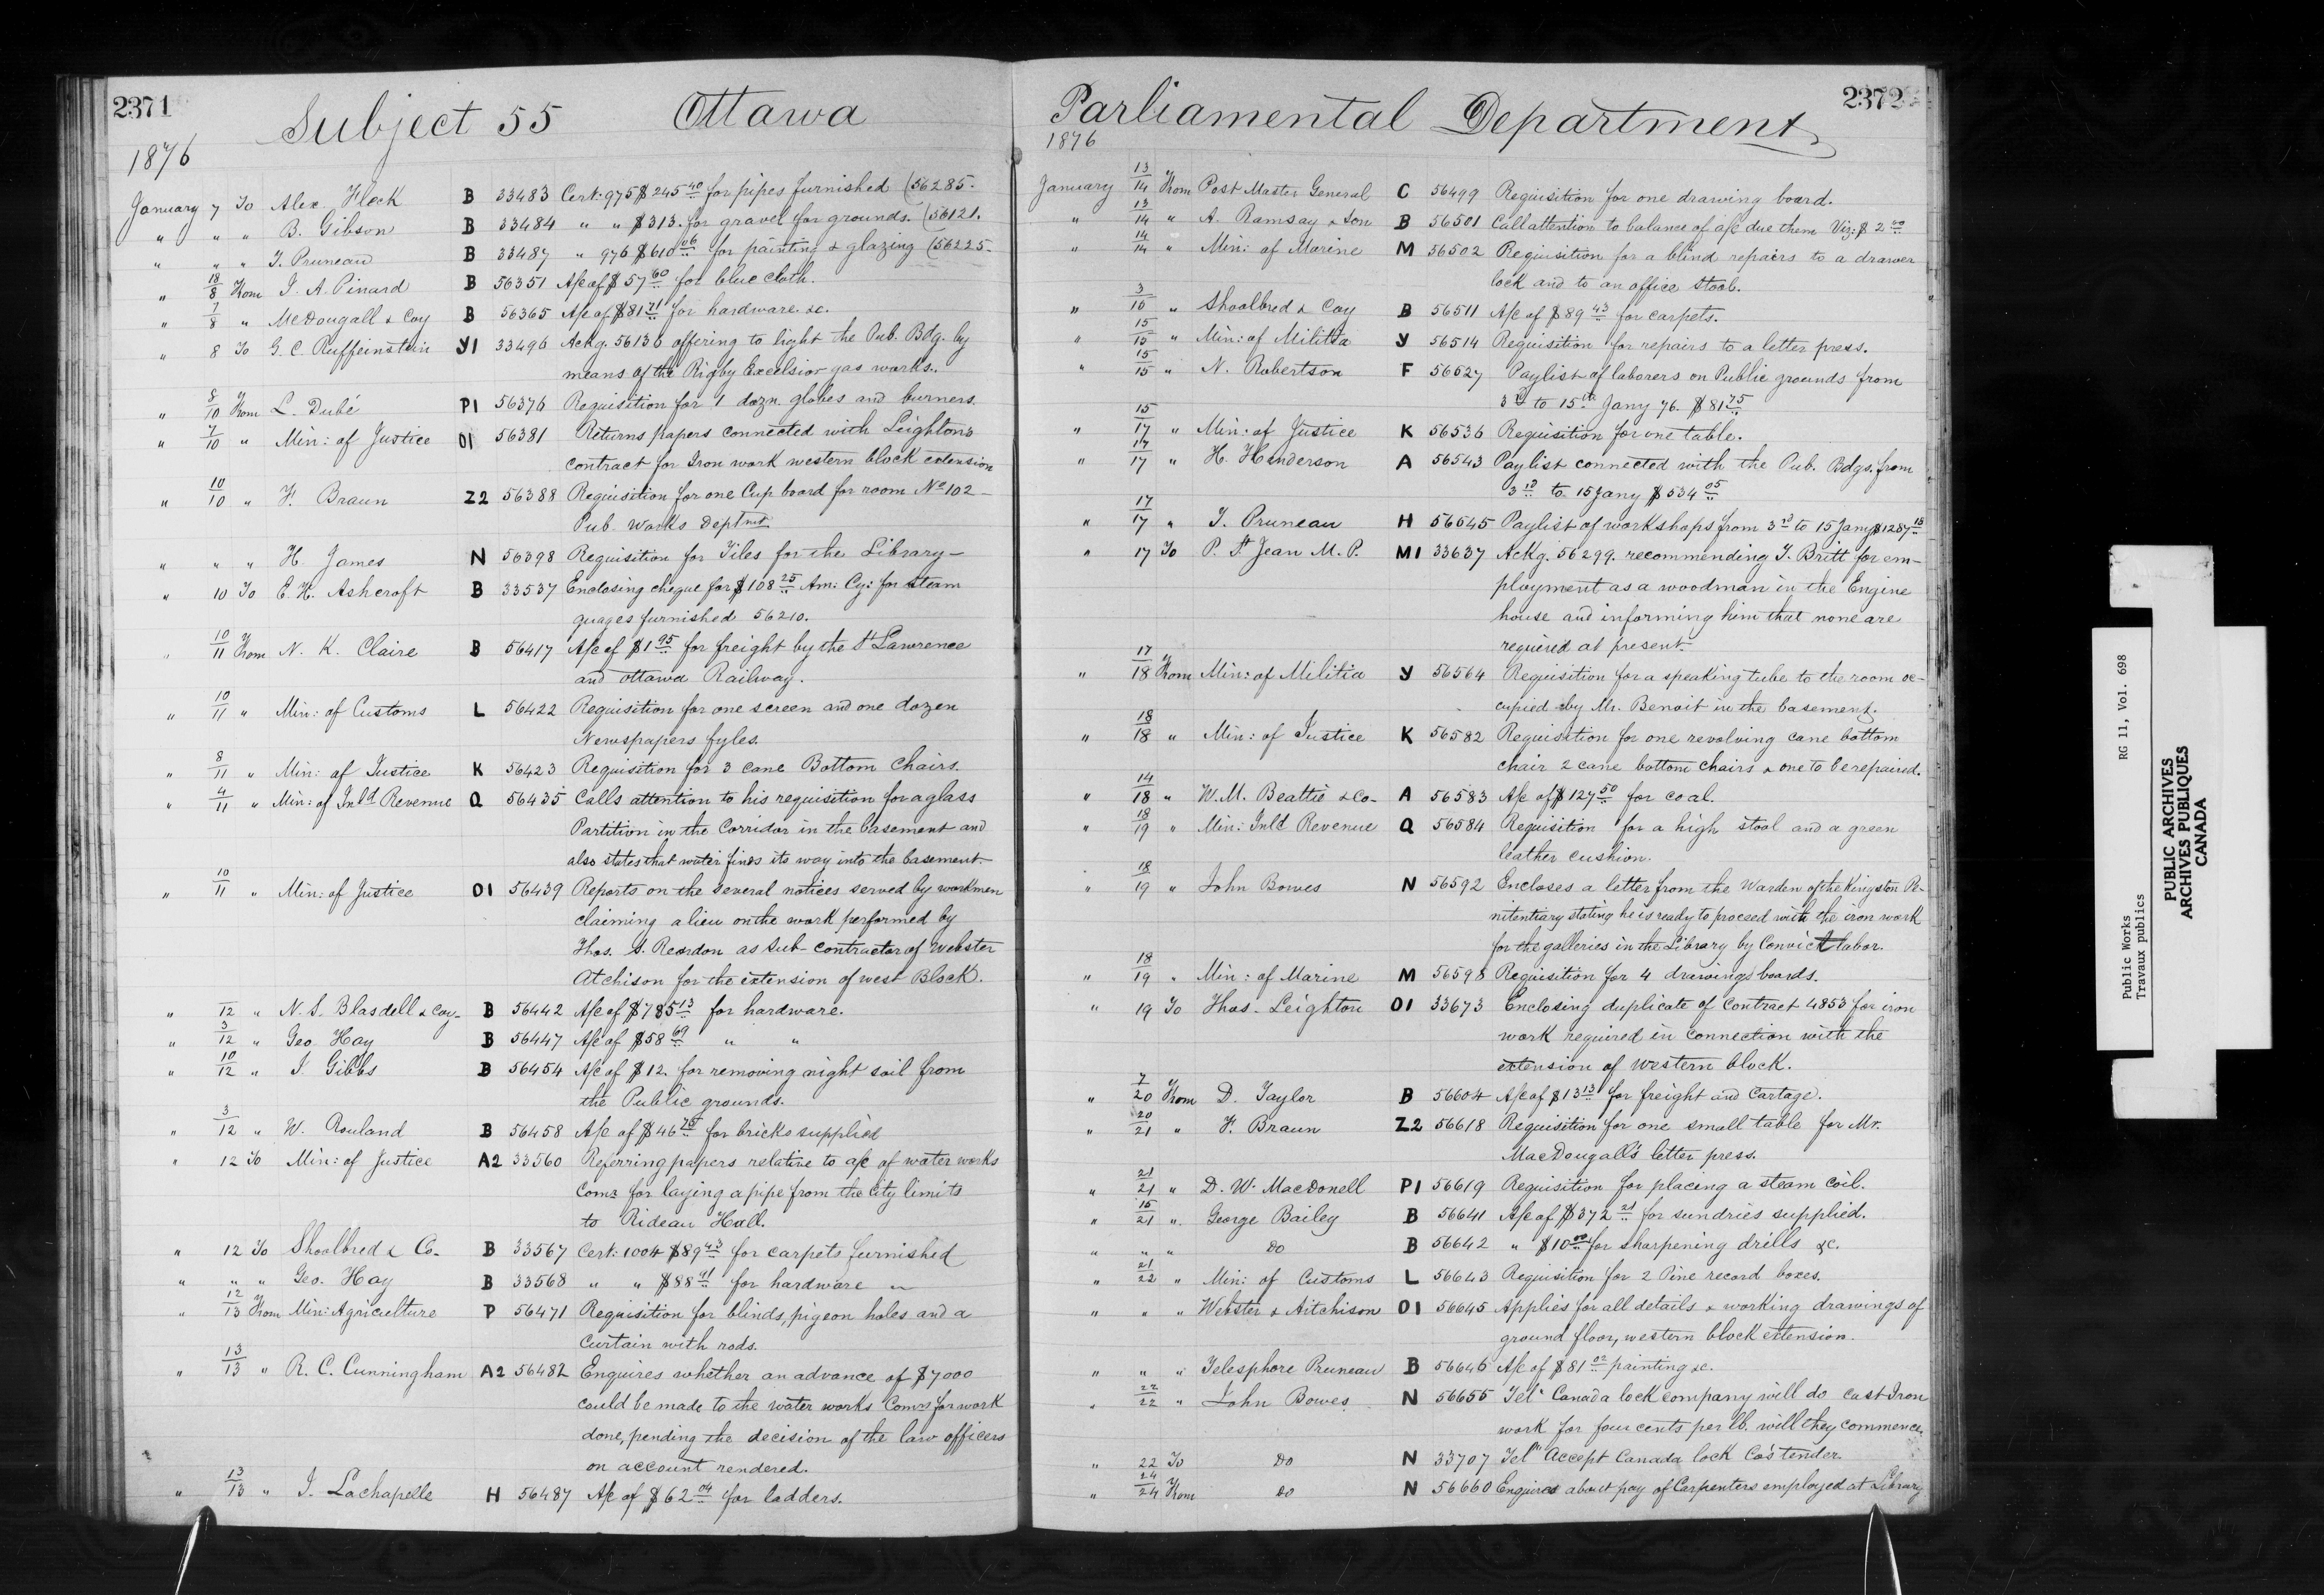 2371
Subject 55 Ottawa
1876
January 7 To Alex. Fleck B 33483 Cert: 975 $245 40 for pipes furnished (56285.
" " " B. Gibson B 33484 " " $313. for gravel for grounds. (56121.
" " " T. Pruneau B 33487 " 976 $610 06 for painting & glazing (56225-
" 18/8 From J. A. Pinard B 56351 A/c of $57 60 for blue cloth.
" 7/8 " McDougall & Coy B 56365 A/c of $81 71 for hardware &c.
" 8 To G. C. Ruffeinstein Y1 33496 Ackg. 56136 offering to light the Pub. Bdg. by
means of the Rigby Excelsior gas works.
" 8/10 From L. Dubé P1 56376 Requisition for 1 dozn. globes and burners.
" 7/10 " Min: of Justice O1 56381 Returns papers connected with Leighton's
contract for Iron work western block extension
" 10/10 " F. Braun Z2 56388 Requisition for one Cup board for room No 102-
Pub. Works Deptmt.
" " " H. James N 56398 Requisition for Tiles for the Library-
" 10 To E. H. Ashcroft B 33537 Enclosing cheque for $108 25 Am: Cy: for steam
guages furnished 56210.
" 10/11 From N. K. Claire B 56417 A/c of $1 95 for freight by the St Lawrence
and Ottawa Railway.
" 10/11 " Min: of Customs L 56422 Requisition for one screen and one dozen
Newspapers fyles.
" 8/11 " Min: of Justice K 56423 Requisition for 3 cane Bottom Chairs.
" 4/11 " Min: of Inld Revenue Q 56435 Calls attention to his requisition for a glass
Partition in the Corridor in the basement and
also states that water finds its way into the basement.
" 10/11 " Min: of Justice O1 56439 Reports on the several notices served by workmen
claiming a lien on the work performed by
Thos. S. Reardon as Sub-contractor of Webster
Atchison for the extension of west Block.
" 12 " N. S. Blasdell & Coy- B 56442 A/c of $785 13 for hardware.
" 3/12 " Geo. Hay B 56447 A/c of $58 69 " "
" 10/12 " J. Gibbs B 56454 A/c of $12. for removing night soil from
the Public grounds.
" 3/12 " W. Rouland B 56458 A/c of $46 75 for bricks supplied
" 12 To Min: of Justice A2 33560 Referring papers relative to a/c of water works
Comrs for laying a pipe from the City limits
to Rideau Hall.
" 12 To Shoolbred & Co- B 33567 Cert: 1004 $89 43 for carpets furnished
" " " Geo. Hay B 33568 " " $88 91 for hardware "
" 12/13 From Min: Agriculture P 56471 Requisition for blinds, pigeon holes and a
Curtain with rods.
" 13/13 " R. C. Cunningham A2 56482 Enquires whether an advance of $7000
could be made to the water works Comrs for work
done, pending the decision of the law officers
on account rendered.
" 13/13 " J. Lachapelle H 56487 A/c of $62 04 for ladders.
2372
Parliamental Department
1876
January 13/14 From Post Master General C 56499 Requisition for one drawing board.
" 13/14 " A. Ramsay & Son B 56501 Call attention to balance of a/c due them Viz: $2 40
" 14/14 " Min: of Marine M 56502 Requisition for a blind repairs to a drawer
lock and to an office stool.
" 3/15 " Shoolbred & Coy B 56511 A/c of $89 43 for carpets.
" 15/15 " Min: of Militia Y 56514 Requisition for repairs to a letter press.
" 15/15 " N. Robertson F 56527 Paylist of laborers on Public grounds from
3rd to 15th Jany 76. $81 75
" 15/17 " Min: of Justice K 56536 Requisition for one table.
" 17/17 " H. Henderson A 56543 Paylist connected with the Pub. Bdgs. from
3rd to 15 Jany $534 05
" 17/17 " T. Pruneau H 56545 Paylist of workshops from 3rd to 15 Jany $1287 18
" 17 To P. St Jean M. P. M1 33637 Ackg. 56299. recommending T. Britt for em-
ployment as a woodman in the Engine
house and informing him that none are
required at present.
" 17/18 From Min: of Militia Y 56564 Requisition for a speaking tube to the room oc-
cupied by Mr. Benoit in the basement.
" 18/18 " Min: of Justice K 56582 Requisition for one revolving cane bottom
chair 2 cane bottom chairs & one to be repaired.
" 14/18 " W. M. Beattie & Co- A 56583 A/c of $127 50 for coal.
" 18/19 " Min: Inld Revenue Q 56584 Requisition for a high stool and a green
leather cushion.
" 18/19 " John Bowes N 56592 Encloses a letter from the Warden of the Kingston Pe-
nitentiary stating he is ready to proceed with the iron work
for the galleries in the Library by Convict labor.
" 18/19 " Min: of Marine M 56598 Requisition for 4 drawings boards.
" 19 To Thos. Leighton O1 33673 Enclosing duplicate of Contract 4853 for iron
work required in connection with the
extension of western block.
" 7/20 From D. Taylor B 56604 A/c of $13 13 for freight and Cartage.
" 20/21 " F. Braun Z2 56618 Requisition for one small table for Mr.
MacDougall's letter press.
" 21/21 " D. W. MacDonell P1 56619 Requisition for placing a steam coil.
" 15/21 " George Bailey B 56641 A/c of $372 21 for sundries supplied.
" " " Do B 56642 " $10 00 for sharpening drills &c.
" 21/22 " Min: of Customs L 56643 Requisition for 2 Pine record boxes.
" " " Webster & Aitchison O1 56645 Applies for all details & working drawings of
ground floor, western block extension.
" " " Telesphore Pruneau B 56646 A/c of $81 02 painting &c.
" 22/22 " John Bowes N 56655 Tel. Canada lock company will do cast Iron
work for four cents per lb. will they commence
" 22 To Do N 33707 Telm Accept Canada lock Co's tender.
" 24/24 From Do N 56660 Enquires about pay of Carpenters employed at Library
Public Works RG 11, Vol. 698
Travaux publics
PUBLIC ARCHIVES
ARCHIVES PUBLIQUES
CANADA